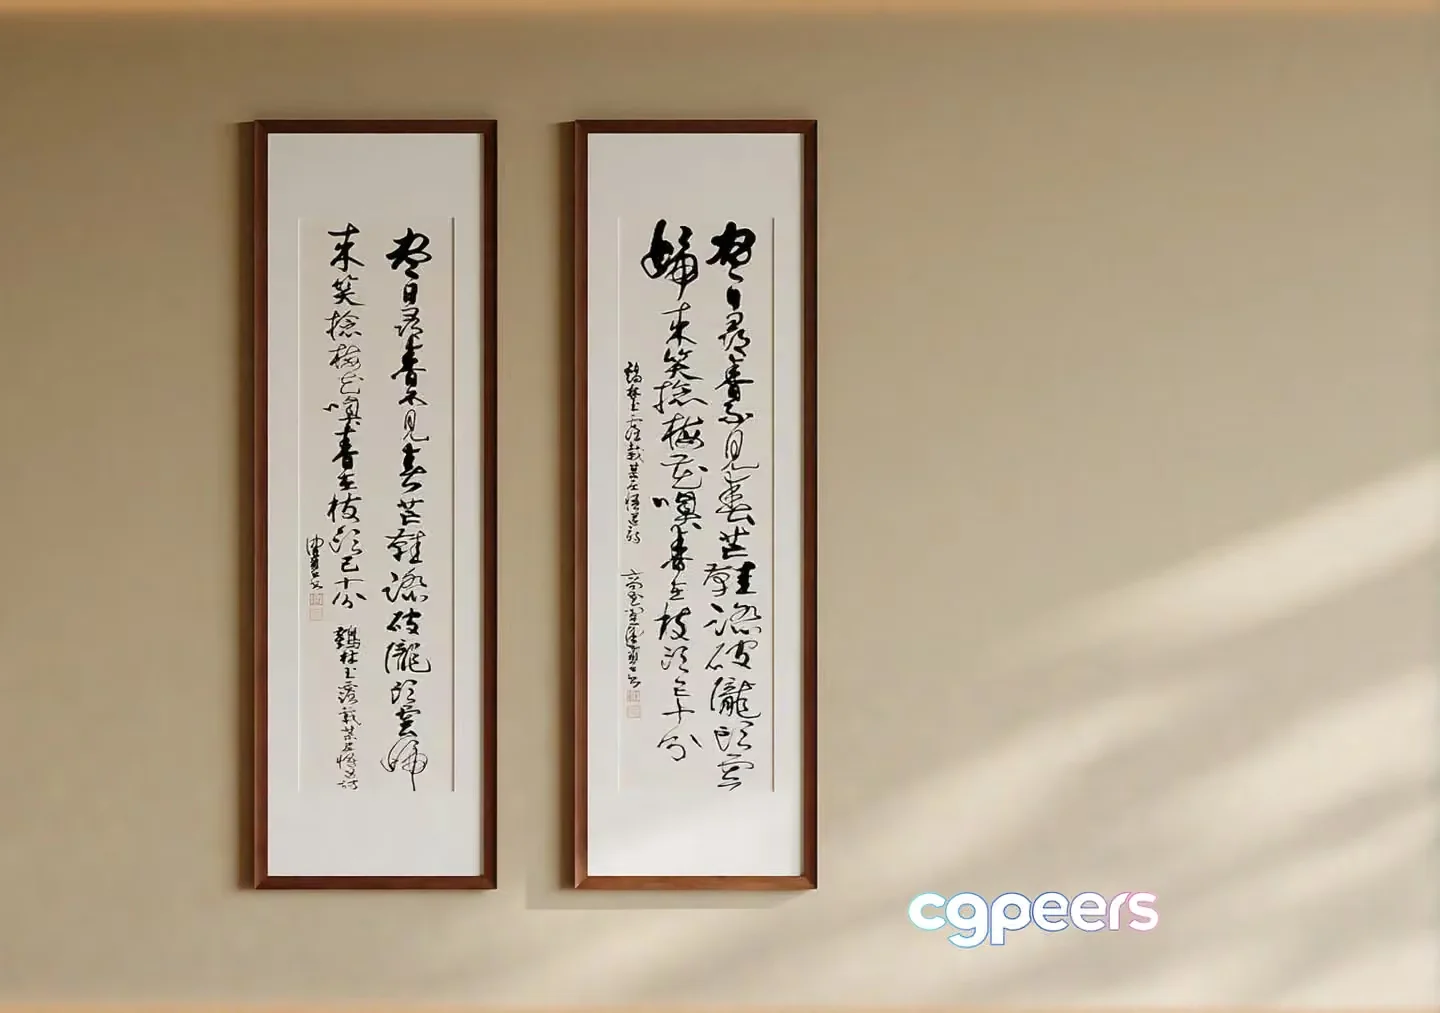 盡日尋春不見春芒鞋踏破隴頭雲歸
来笑捻梅花嗅春在枝頭已十分 鶴林玉露載某尼悟道詩
盡日尋春不見春芒鞋踏破隴頭雲
歸来笑捻梅花嗅春在枝頭已十分
鶴林玉露載某尼悟道詩
cgpeers